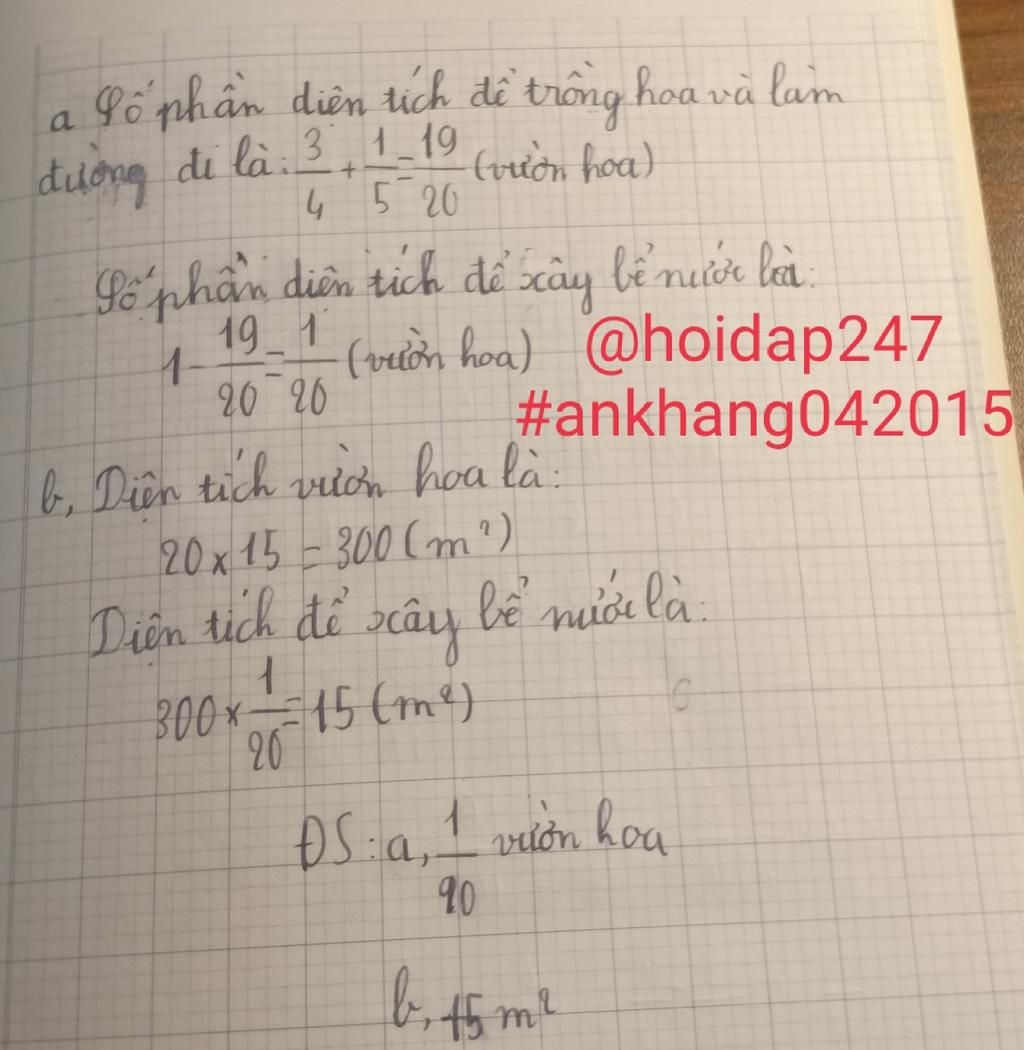 a Số phần diện tích để trồng hoa và làm
đường đi là: 3/4 + 1/5 = 19/20 (vườn hoa)
Số phần diện tích để xây bể nước là:
1 - 19/20 = 1/20 (vườn hoa)
@hoidap247
#ankhang042015
b, Diện tích vườn hoa là:
20 x 15 = 300 (m²)
Diện tích để xây bể nước là:
300 x 1/20 = 15 (m²)
ĐS: a, 1/20 vườn hoa
b, 15 m²